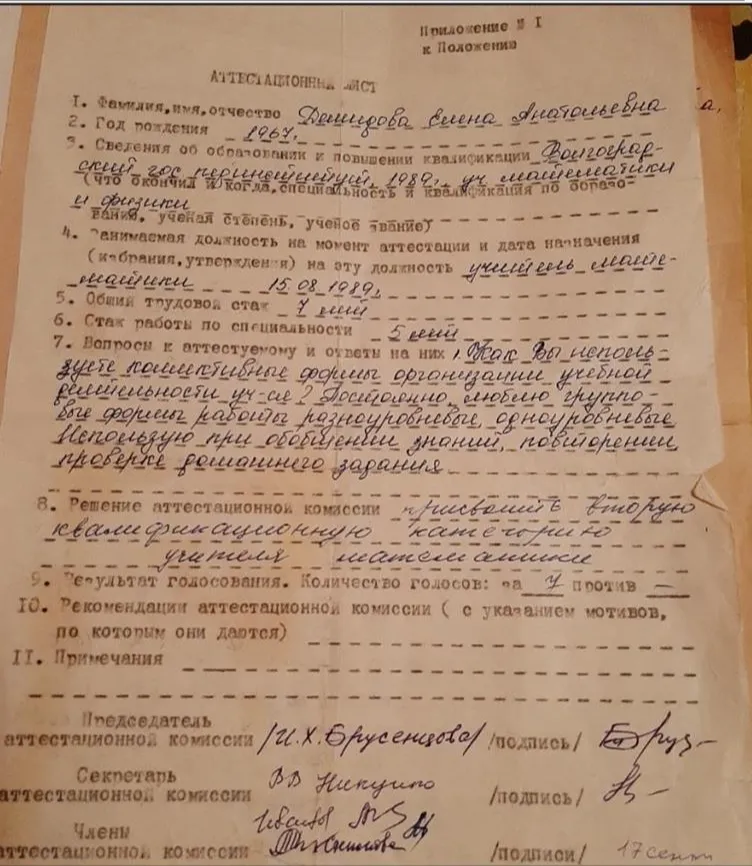 Приложение № I
к Положению
АТТЕСТАЦИОННЫЙ ЛИСТ
I. Фамилия,имя,отчество Демидова Елена Анатольевна
2. Год рождения 1967г.
3. Сведения об образовании и повышении квалификации Волгоград-
ский гос. пединститут, 1989г, уч. математики
(что окончил и когда,специальность и квалификация по образо-
и физики
вании, ученая степень, ученое звание)
4. Занимаемая должность на момент аттестации и дата назначения
(избрания,утверждения) на эту должность учитель мате-
матики 15.08.1989г.
5. Общий трудовой стаж 7 лет
6. Стаж работы по специальности 5 лет
7. Вопросы к аттестуемому и ответы на них 1. Как Вы исполь-
зуете коллективные формы организации учебной
деятельности уч-ся? Постоянно, люблю группо-
вые формы работы разноуровневые, одноуровневые
Использую при обобщении знаний, повторении,
проверке домашнего задания
8. Решение аттестационной комиссии присвоить вторую
квалификационную категорию
учителя математики
9. Результат голосования. Количество голосов: за 7 против —
IO. Рекомендации аттестационной комиссии ( с указанием мотивов,
по которым они даются)
II. Примечания
Председатель
аттестационной комиссии /И.Х.Брусенцова/ /подпись/
Секретарь
аттестационной комиссии ВВ /подпись/
Члены
аттестационной комиссии /подписи/ 17 сент